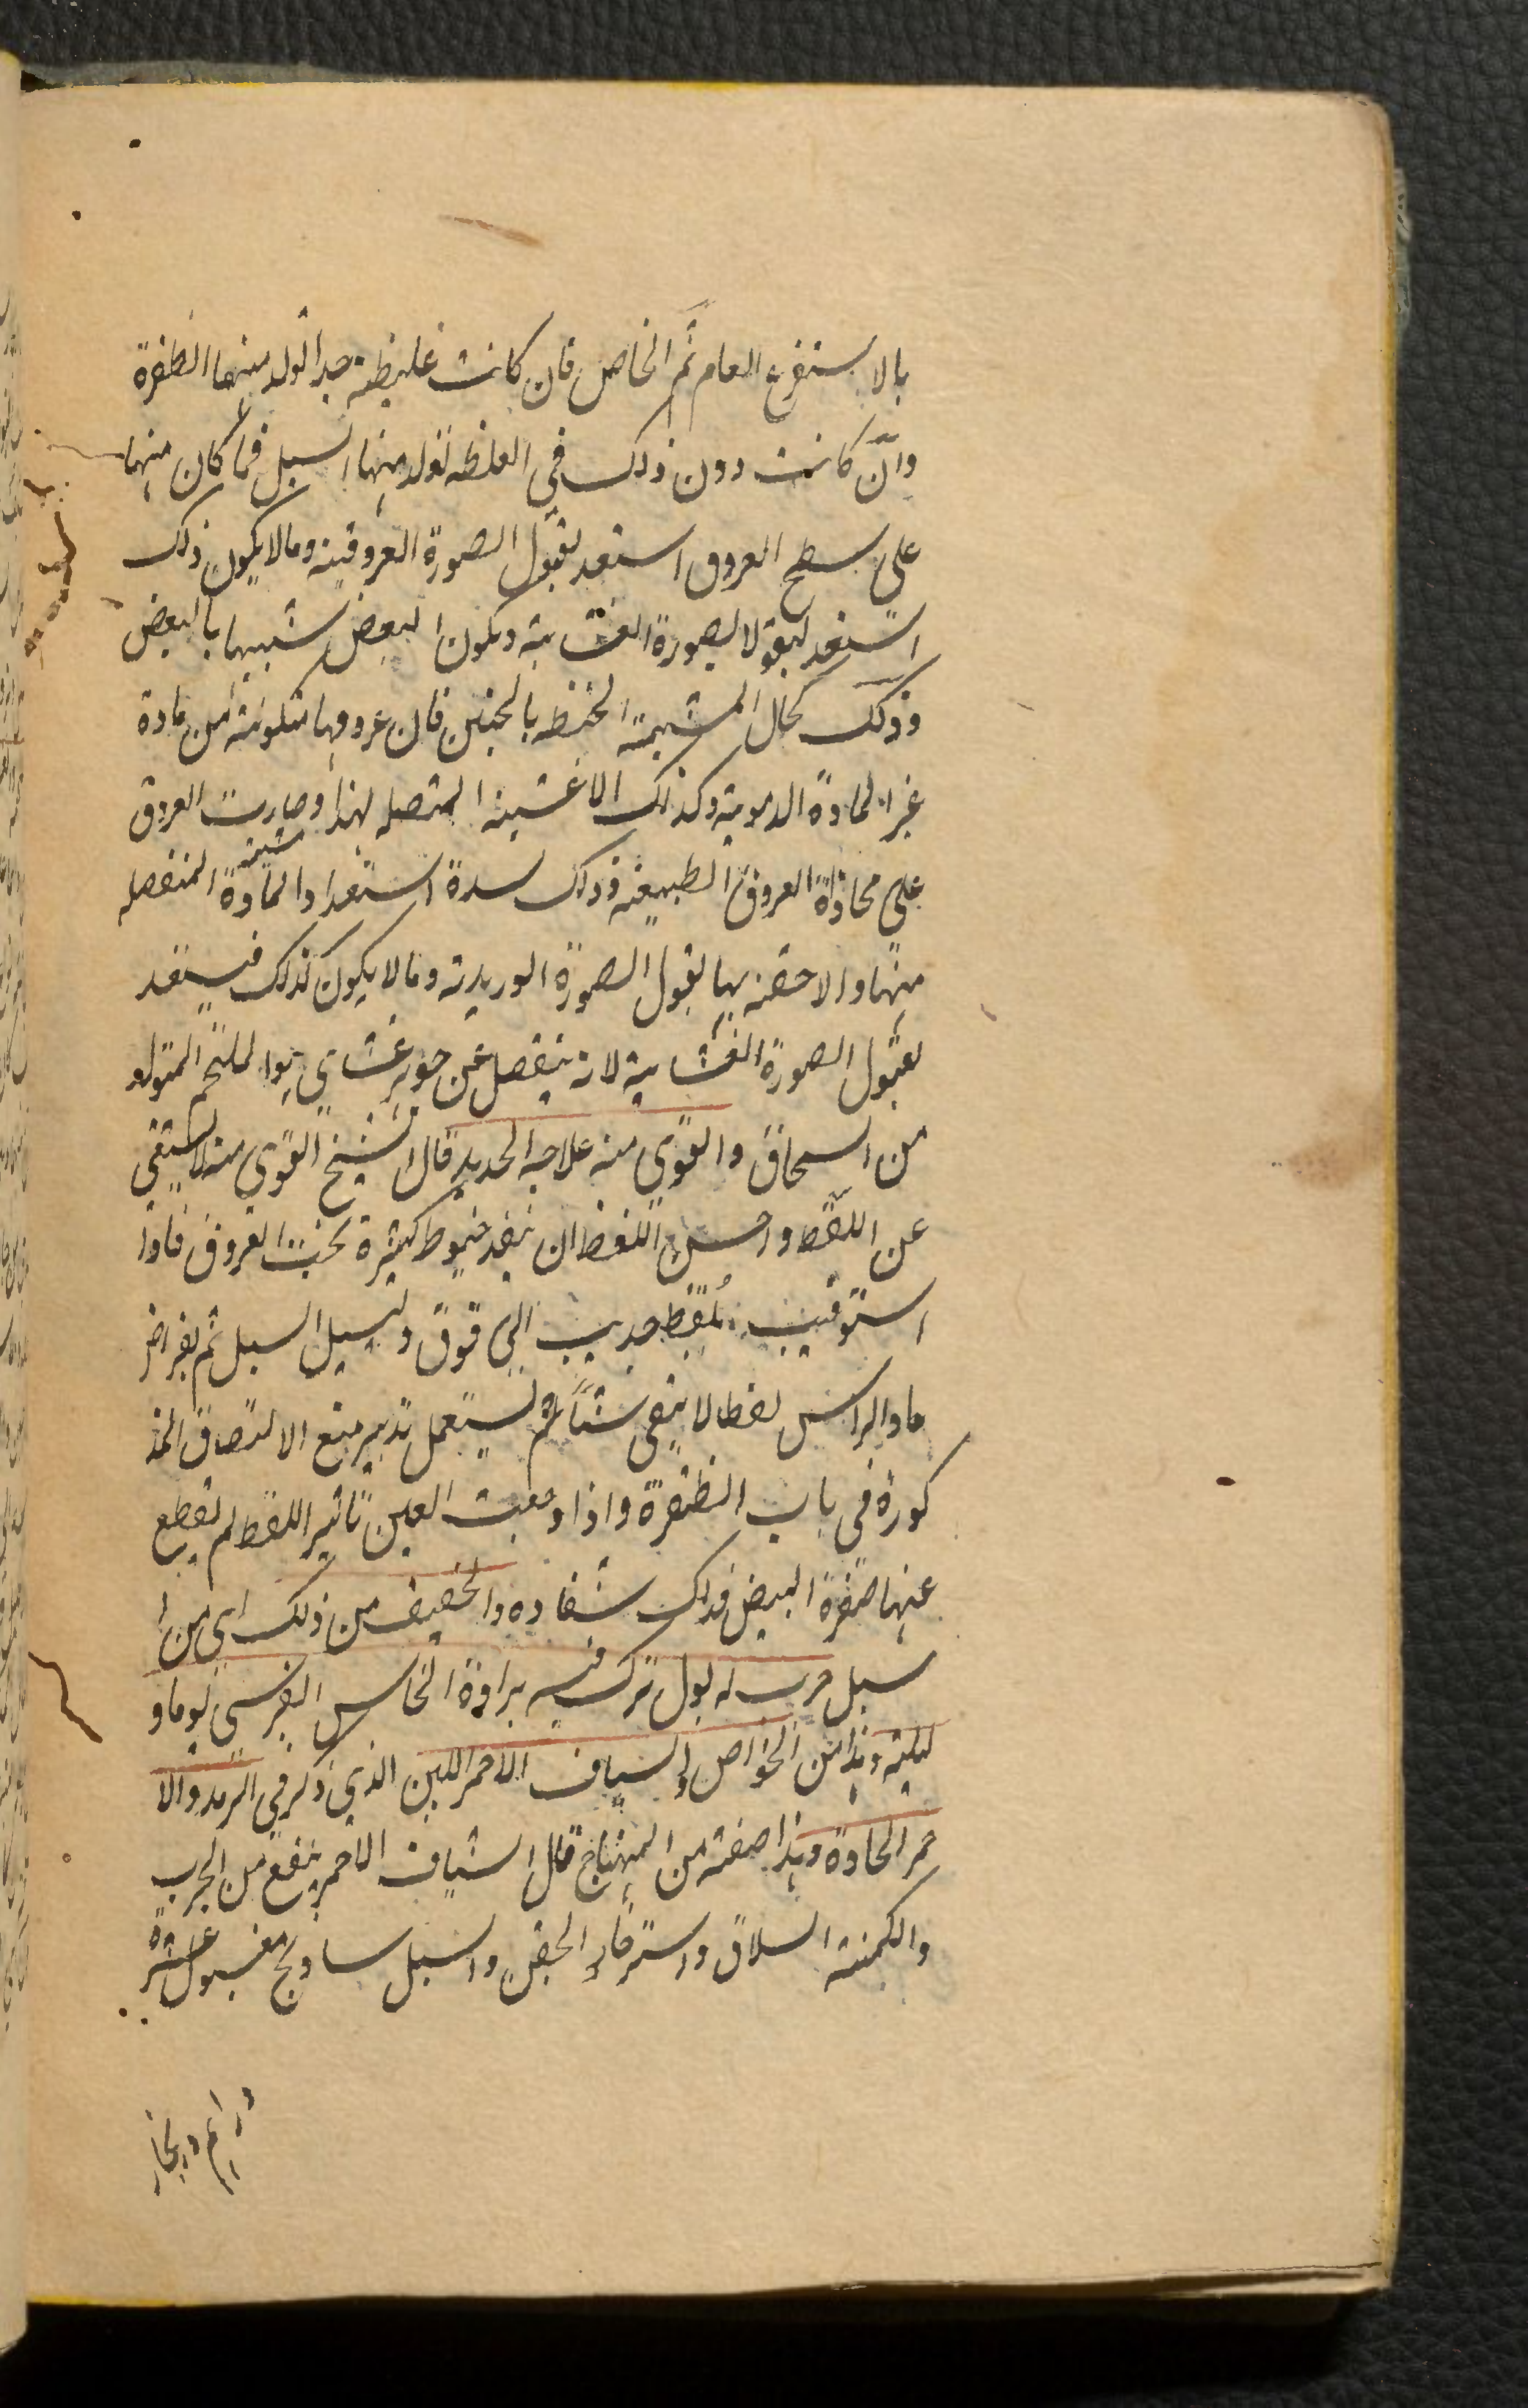 بالاستفرغ العام ثم الخاص فان كانت غليظة جدا تولد منها الظفرة
وان كانت دون ذلك في الغلظه تولد منها السبل فما كان منها
على سطح العروق استعد لقبول الصورة العروقية ومالا يكون ذلك
استعد لقبولا لصورة الغشابية ويكون البعض شبيها بالبعض
وذلك كحال المشيمة المحيطه بالجنين فان عروقها متكونة من مادة
غير المادة الدموية وكذلك الاغشية المتصله لهذا وصارت العروق
على محاذاة العروق الطبيعة وذلك لسدة استعداد المادة المنفصله
منها والاحقة بها لقبول الصورة الوريدية ومالا يكون كذلك فيستعد
لقبول الصورة الغشابية لانه ينفصل عن جوهر غشاي هوا لملتحم المتولد
من السمحاق والقوي منه علاجه الحديد قال الشيخ القوي منه لا يستغني
عن اللقط واحسن اللقط ان ينفذ خيوط كثيرة تحت العروق فاذا
استوفيت بلقط جذبت الى فوق ولسيل السبل ثم بقراض
حاد الراس لقطا لا يبقى شئا ثم يستعمل تدبير منع الالتصاق المذ
كورة في باب الظفرة واذا وجعت العين تاثير اللقط لم تقطع
عنها صفرة البيض فذلك شفاده والخفيف من ذلك اي من ا
سبل جرب له بول ترك فيه برادة النحاس القبرسي يوما و
ليلة وهذا من الخواص والشياف الاحمر اللين الذي ذكر في الرمد والا
حمر الحادة وهذا صفته من المنهاج قال الشياف الاحمر ينفع من الجرب
والكمنة السلاق واسترخا الجفن والسبل سادنج مغسول عشرة
دراهم زنجار